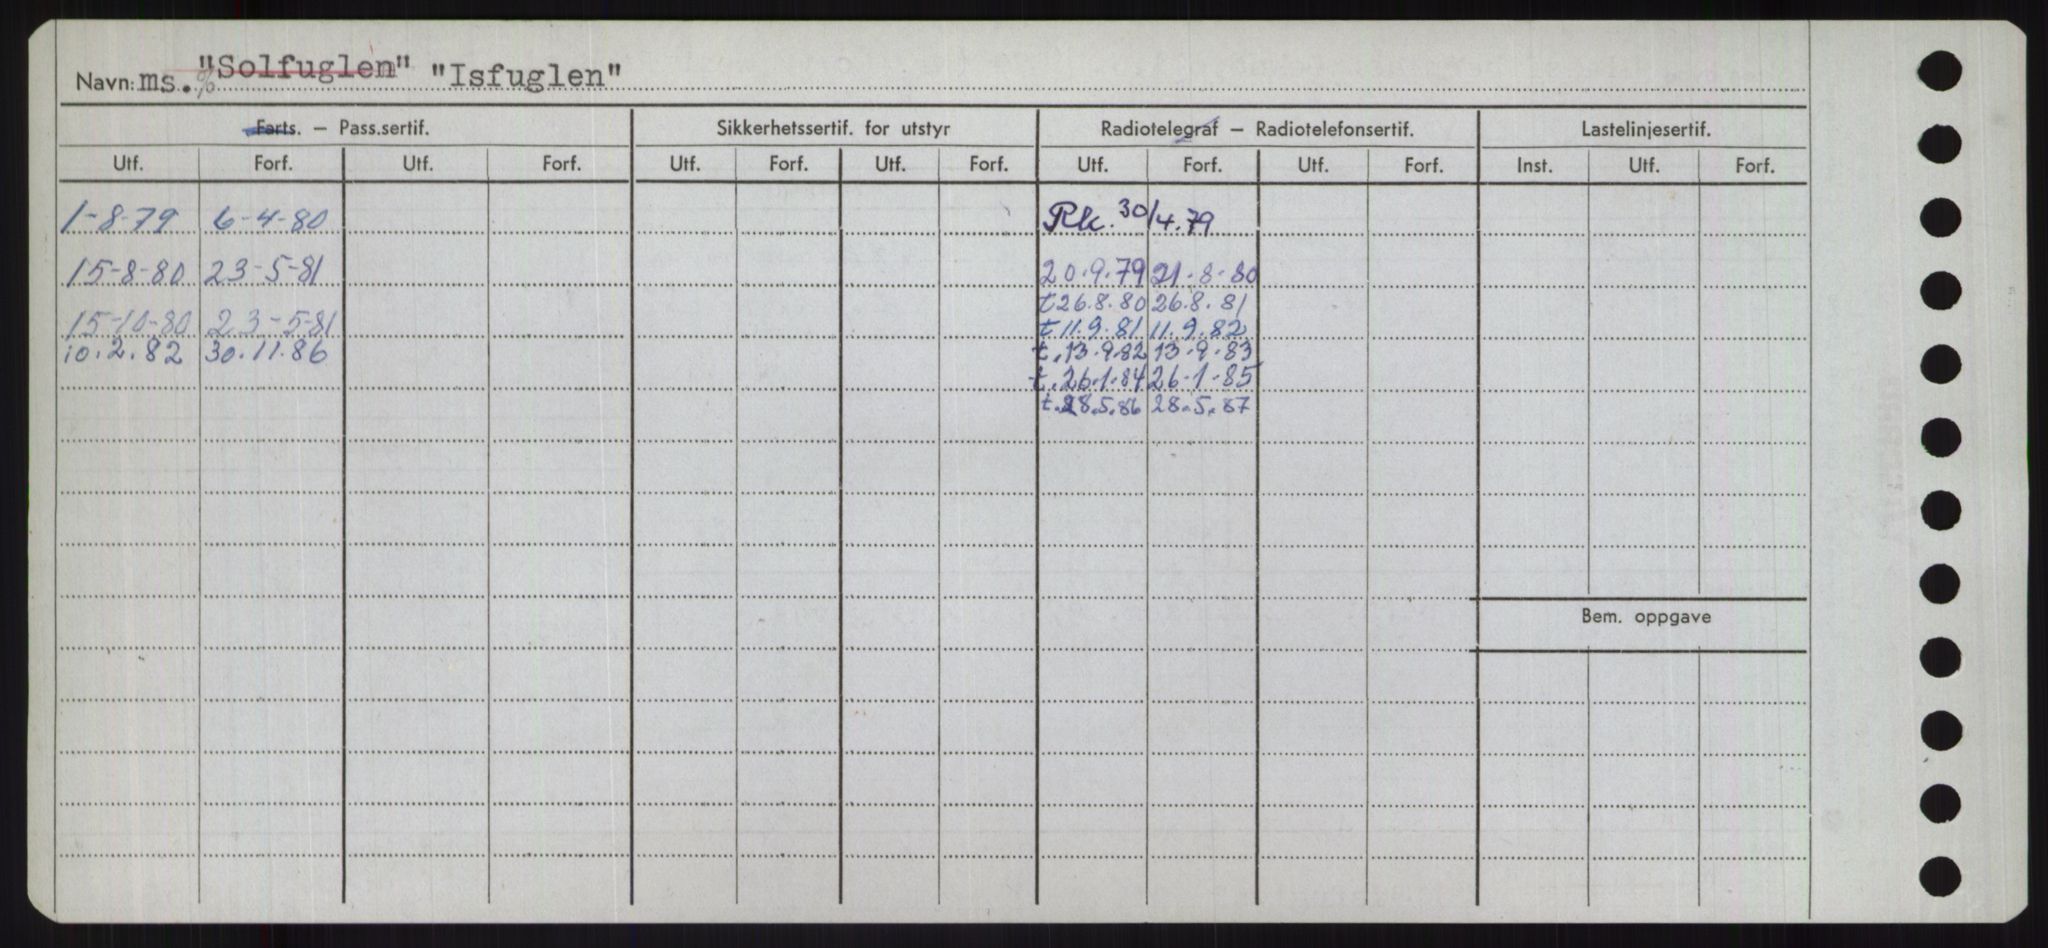 Navn: ms. "Solfuglen" "Isfuglen"
Farts. – Pass.sertif. Sikkerhetssertif. for utstyr Radiotelegraf – Radiotelefonsertif. Lastelinjesertif.
Utf. Forf. Utf. Forf. Utf. Forf. Utf. Forf. Utf. Forf. Utf. Forf. Inst. Utf. Forf.
1-8-79 6-4-80 Rk. 30/4.79
15-8-80 23-5-81 20.9.79 21-8-80
t 26.8.80 26.8.81
15-10-80 23-5-81 t 11.9.81 11.9.82
10.2.82 30.11.86 t. 13.9.82 13-9-83
t. 26.1.84 26-1-85
t. 28.5.86 28.5.87
Bem. oppgave